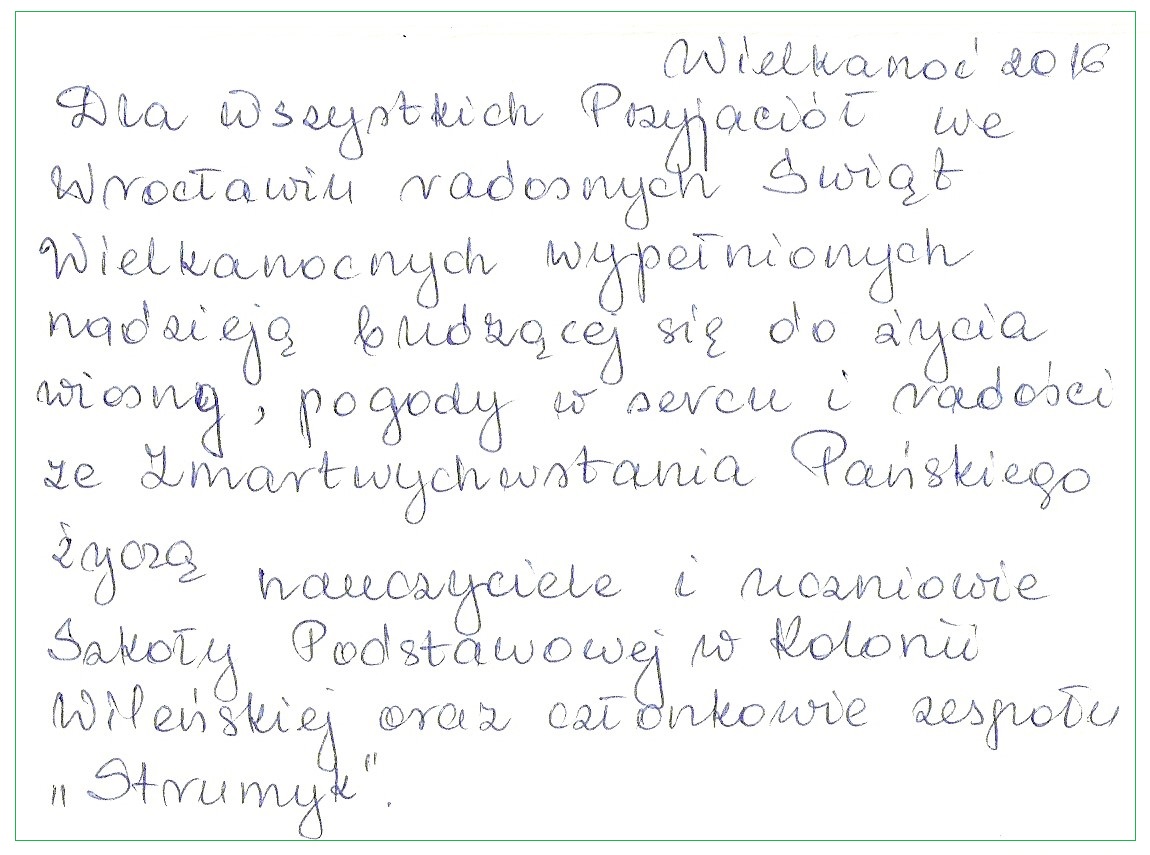 Wielkanoc 2016
Dla wszystkich Przyjaciół we
Wrocławiu radosnych Świąt
Wielkanocnych wypełnionych
nadzieją budzącej się do życia
wiosny, pogody w sercu i radości
ze Zmartwychwstania Pańskiego
życzą nauczyciele i uczniowie
Szkoły Podstawowej w Kolonii
Wileńskiej oraz członkowie zespołu
„Strumyk".